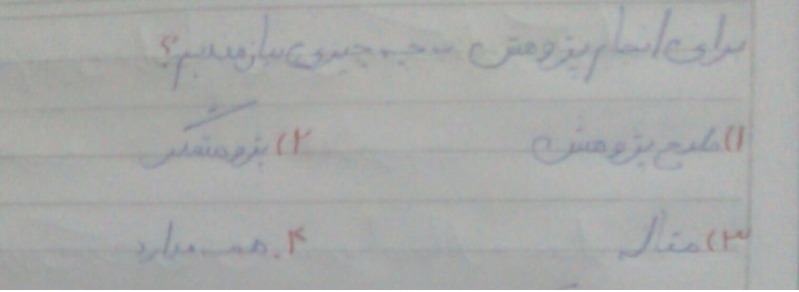 برای انجام پژوهش به چه چیزی نیازمندیم؟
۱) طرح پژوهش ۲) پژوهشگر
۳) مقاله ۴. همه موارد